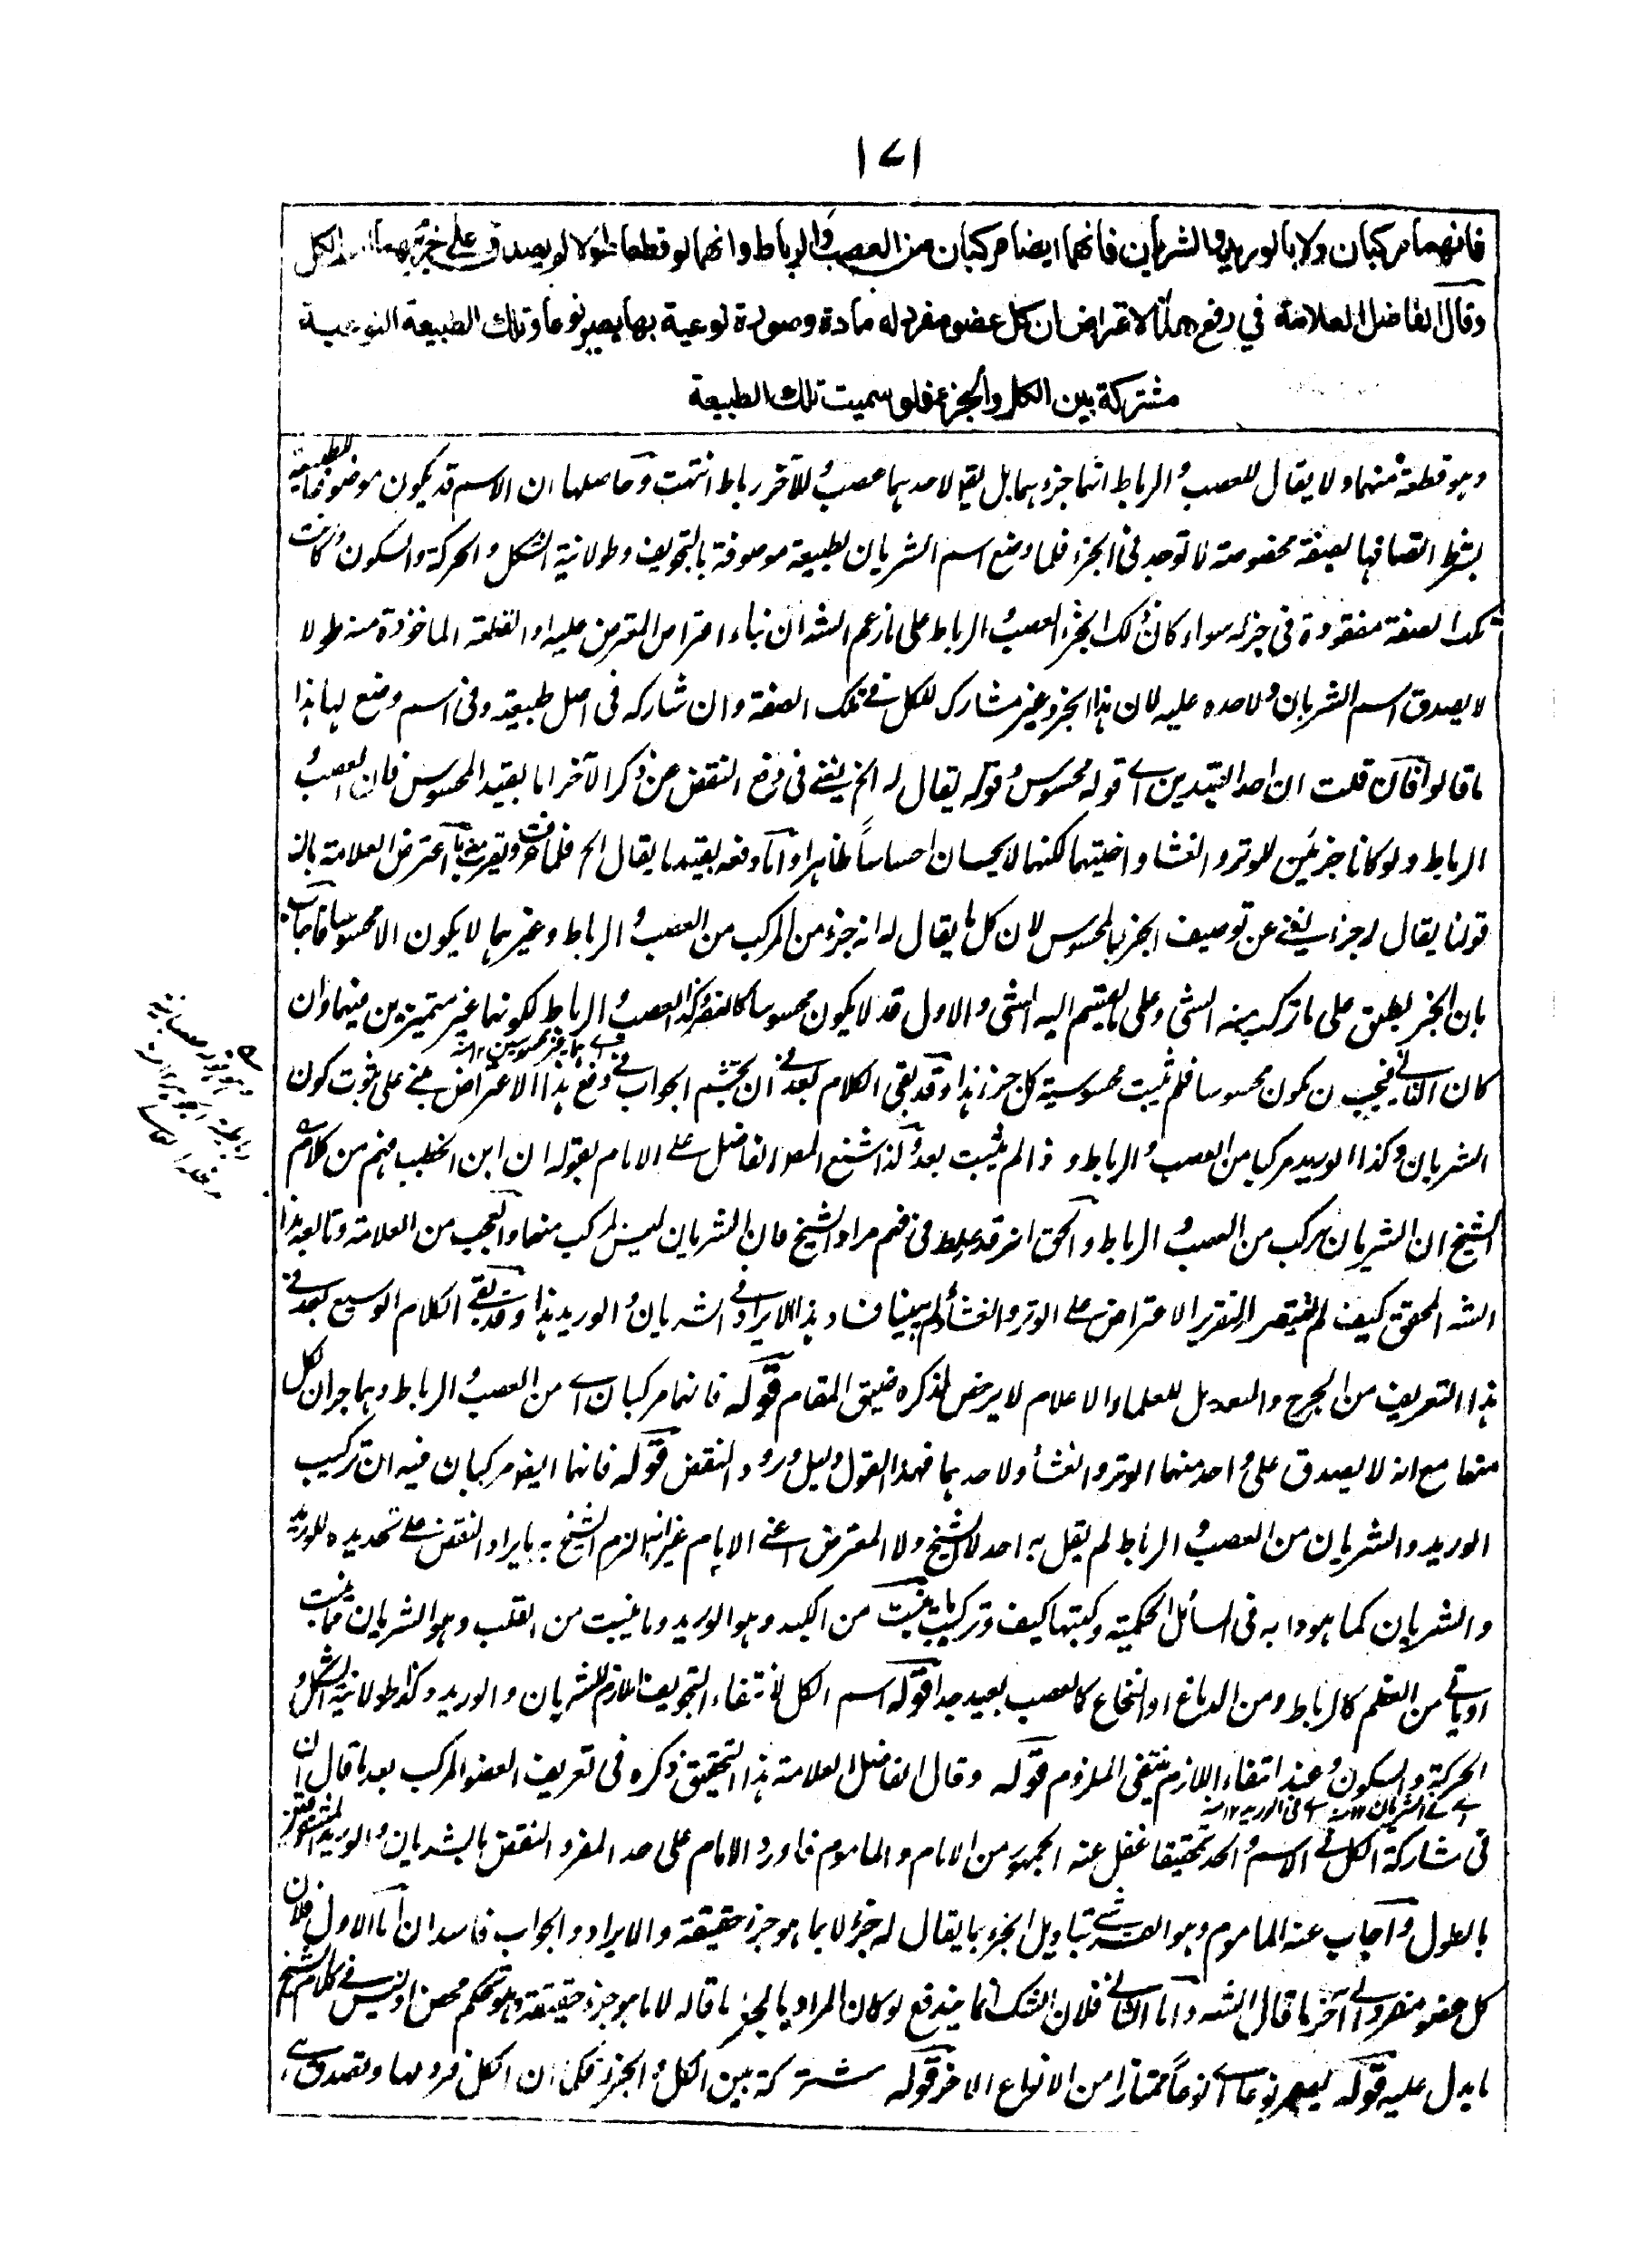 ١٧١
فانهما مركبان ولا بالوريد والشريان فانهما ايضا مركبان من العصب والرباط وانهما لو قطعا طولا لم يصدق على جزئيهما اسم الكل
وقال الفاضل العلامة في دفع هذا الاعتراض ان كل عضو مفرد له مادة وصورة نوعية بها يصير نوعا وتلك الطبيعة النوعية
مشتركة بين الكل والجزء فلو سميت تلك الطبيعة
وهو قطعة منهما ولا يقال للعصب والرباط انهما جزءهما بل يقال لاحدهما عصب وللآخر رباط انتهت وحاصلها ان الاسم قد يكون موضوعا للطبيعة
بشرط اتصافها بصفة مخصوصة لا توجد في الجزء فلما وضع اسم الشريان لطبيعة موصوفة بالتجويف وطولانية الشكل والحركة والسكون وكانت
تلك الصفة مفقودة في جزئه سواء كان ذلك الجزء العصب والرباط على ما زعم الشه ان بناء اعتراض المعترض عليه او القطعة الماخوذة منه طولا
لا يصدق اسم الشريان ولا حده عليه لان هذا الجزء غير مشارك للكل في تلك الصفة وان شاركه في اصل طبيعته وفي اسم وضع لها هذا
ما قالوا فان قلت ان احد القيدين اي قوله محسوس وقوله يقال له الخ يغني في دفع النقض عن ذكر الآخر اما بقيد المحسوس فان العصب و
الرباط ولو كانا جزئين للوتر والغشاء واخيتهما لكنهما لا يحسان احساسا ظاهرا واما دفعه بقيد ما يقال الخ فلما عرفت وبقريب منه ما اعترض العلامة بان
قولنا يقال له جزء يغني عن توصيف الجزء بالمحسوس لان كل ما يقال له انه جزء من المركب من العصب والرباط وغيرهما لا يكون الا محسوسا فاجاب
بان الجزء يطلق على ما تركب منه الشئ وعلى ما ينقسم اليه الشئ والاول قد لا يكون محسوسا كالعصب والرباط لكونهما غير متميزين منهما وان
كان الثاني فيجب ان يكون محسوسا فلم يثبت محسوسية كل جزء هذا وقد بقي الكلام بعد في ان تجشم الجواب في دفع هذا الاعتراض مبني على ثبوت كون
الشريان وكذا الوريد مركبا من العصب والرباط وذا لم يثبت بعد ولذا شنع الفاضل على الامام بقوله ان ابن الخطيب فهم من كلام
الشيخ ان الشريان مركب من العصب والرباط والحق انه قد غلط في فهم مراد الشيخ فان الشريان ليس بمركب منهما والعجب من العلامة وتابعه هذا
الشه المحقق كيف لم يقتصر لتقرير الاعتراض على الوتر والغشاء ولم يبينا فساد هذا الايراد في الشريان والوريد هذا وقد بقي الكلام الوسيع بعد في
هذا التعريف من الجرح والتعديل للعلماء الاعلام لا يرخص لذكره ضيق المقام قوله فانهما مركبان اي من العصب والرباط وهما جزآن لكل
منهما مع انه لا يصدق على واحد منهما الوتر والغشاء ولا حدهما فهذا القول دليل ورود النقض قوله فانهما ايضا مركبان فيه ان تركيب
الوريد والشريان من العصب والرباط لم يقل به احد لا الشيخ ولا المعترض اعني الامام غير انه الزم الشيخ به بايراد النقض على تحديده للوريد
والشريان كما هو دابه في المسائل الحكمية وكتبها كيف وتركيب ما ينبت من الكبد وهو الوريد وما ينبت من القلب وهو الشريان مما ينبت
او ياتي من العظم كالرباط ومن الدماغ او النخاع كالعصب بعيد جدا قوله اسم الكل لانتفاء التجويف اللازم للشريان والوريد وكذا طولانية الشكل و
الحركة والسكون وعند انتفاء اللازم ينتفي الملزوم قوله وقال الفاضل العلامة هذا التحقيق ذكره في تعريف العضو المركب بعد ما قال ان
اي في الشريان ١٢ منه اي في الوريد ١٢ منه
في مشاركة الكل في الاسم والحد تحقيقا غفل عنه الجمهور من الامام والماموم فاورد الامام على حد المفرد النقض بالشريان والوريد
بالطول واجاب عنه الماموم وهو القرشي بتاويل الجزء بما يقال له جزء لا بما هو جزء حقيقة والايراد والجواب فاسدان اما الاول فلان
كل عضو مفرد الى آخر ما قال الشه واما الثاني فلان الشك انما يندفع لو كان المراد بالجزء ما قاله لا ما هو جزء حقيقة وهو تحكم محض اذ ليس في كلام الشيخ
ما يدل عليه قوله يصير نوعا اي نوعا ممتازا من الانواع الاخر قوله مشتركة بين الكل والجزء فكما ان الكل فرد لها وتصدق هي